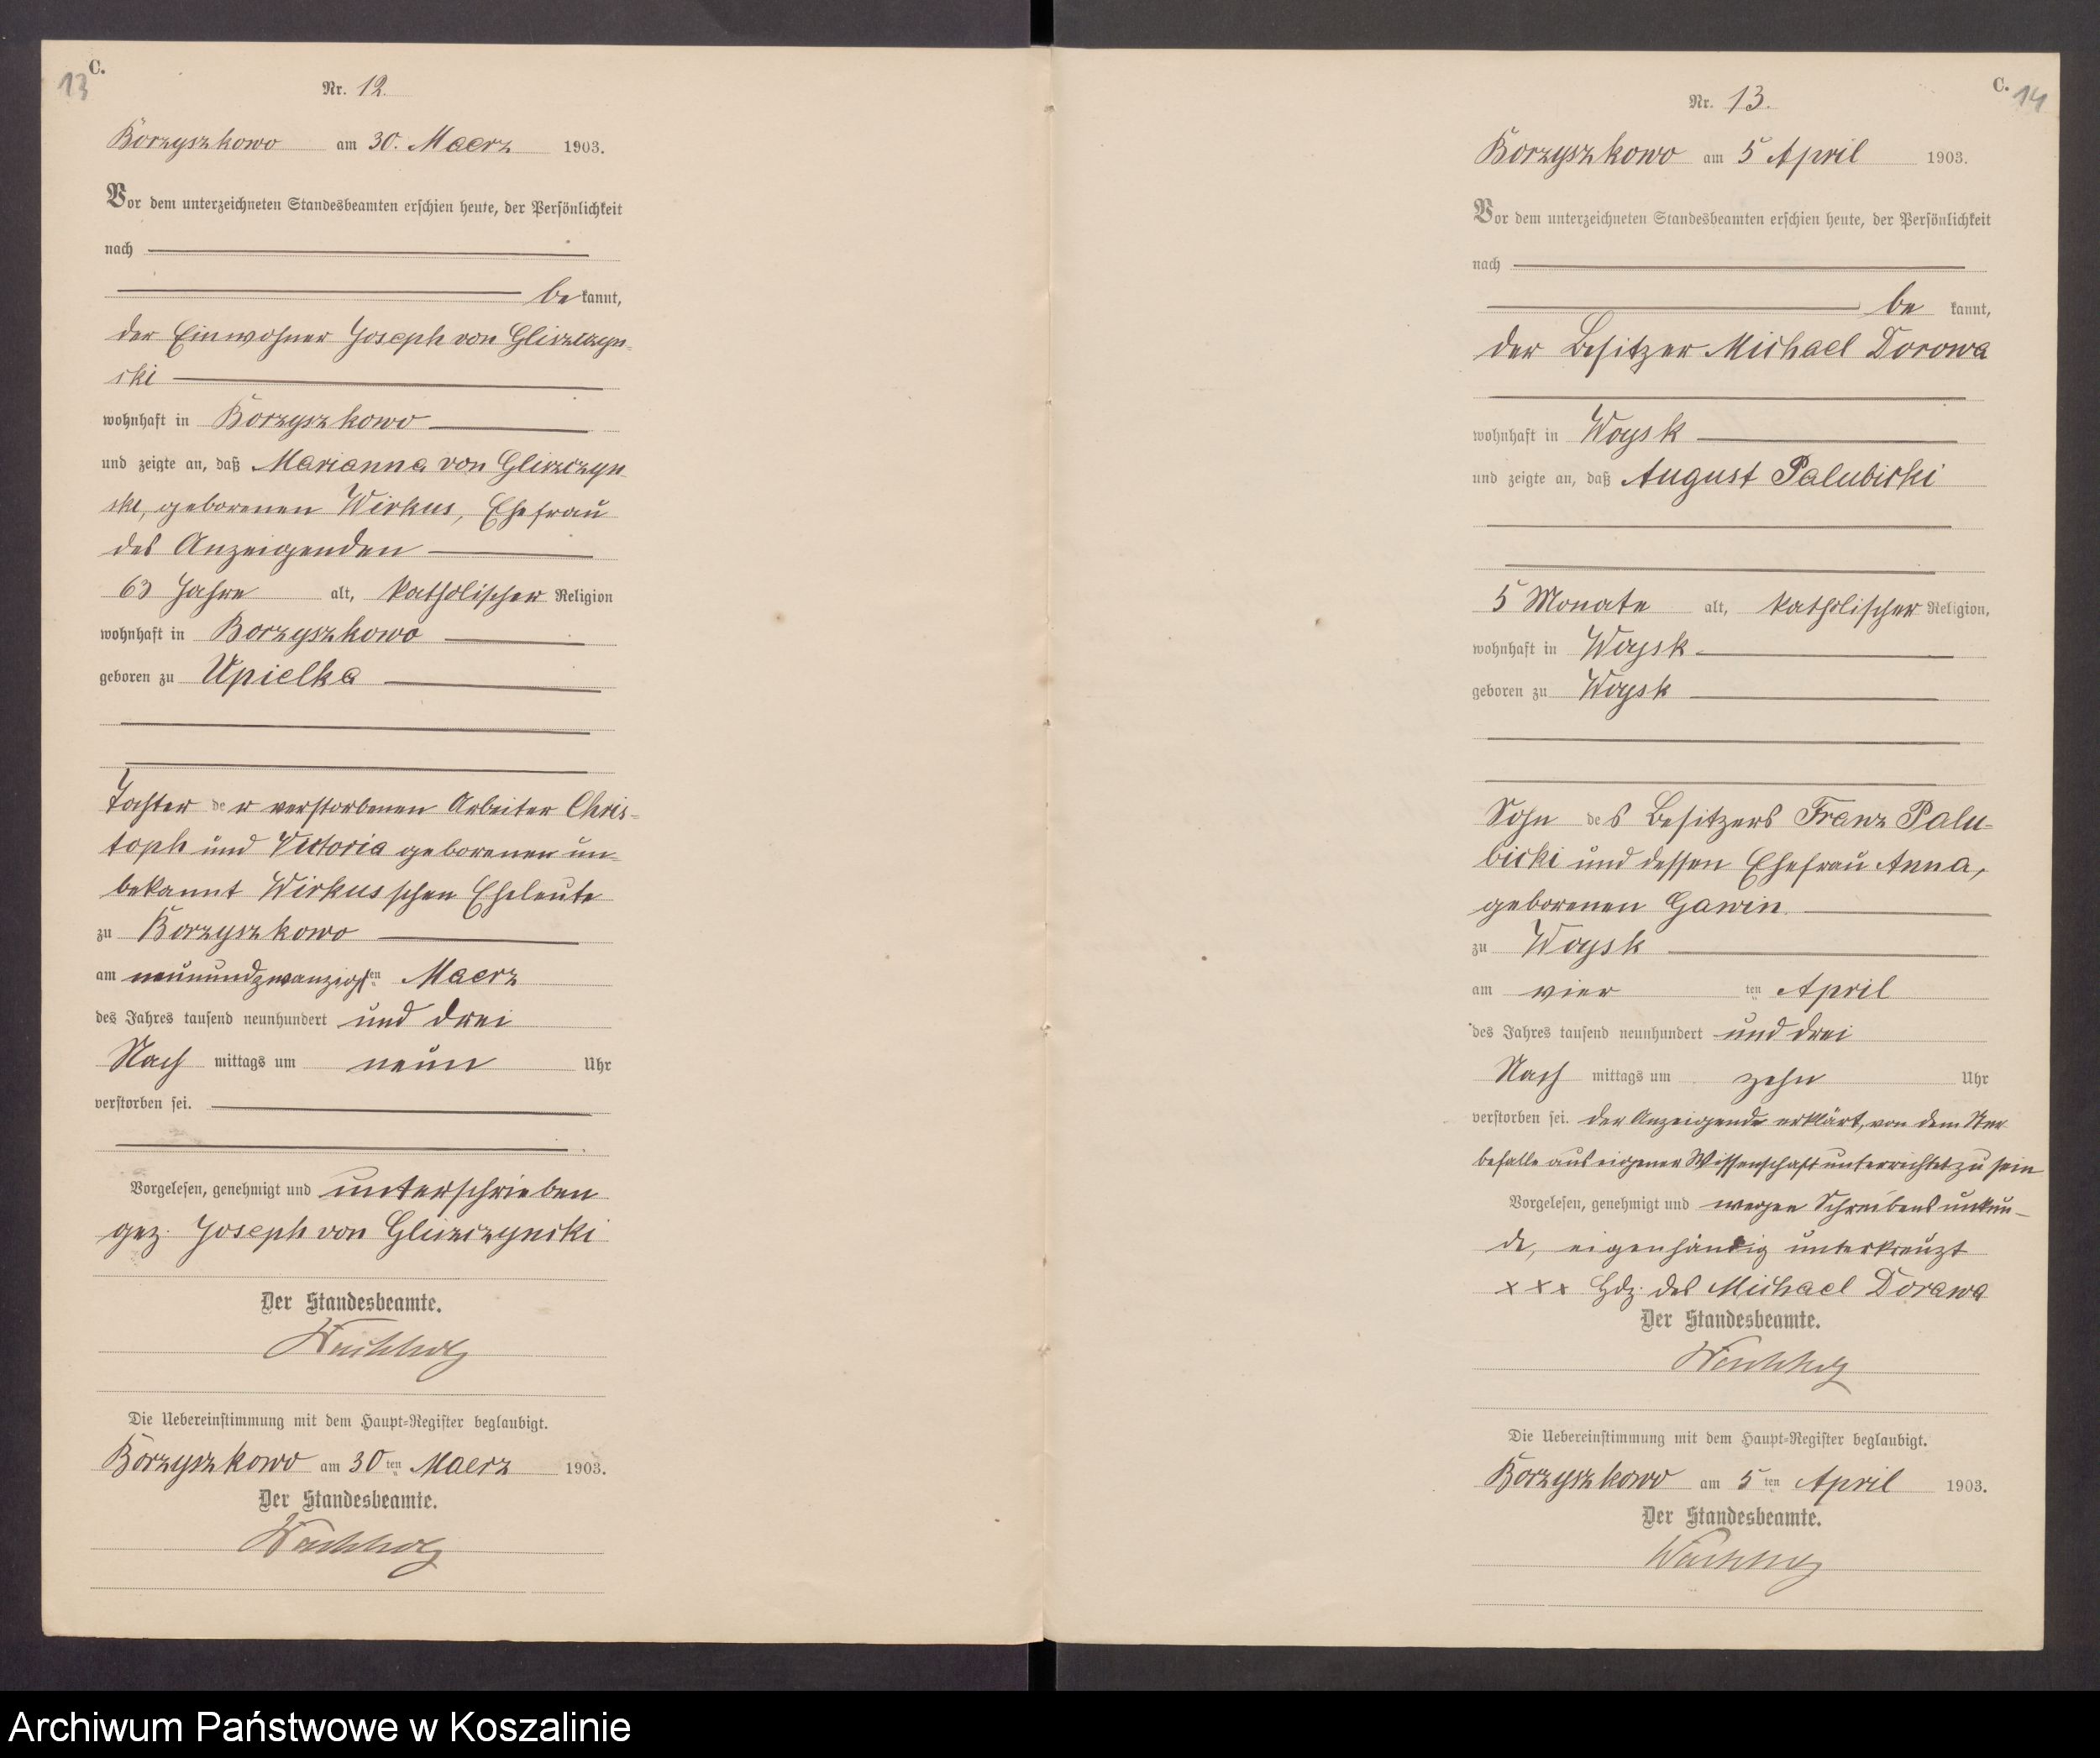 13
C.
Nr. 12.
Borzyszkowo am 30. Maerz 1903.
Vor dem unterzeichneten Standesbeamten erschien heute, der Persönlichkeit
nach
be kannt,
der Einwohner Joseph von Gliszczyn-
ski
wohnhaft in Borzyszkowo
und zeigte an, daß Marianna von Gliszczyn
ski, geborenen Wirkus, Ehefrau
des Anzeigenden
63 Jahre alt, katholischer Religion
wohnhaft in Borzyszkowo
geboren zu Upielka
Tochter der verstorbenen Arbeiter Chris-
toph und Victoria geborenen un-
bekannt Wirkus'schen Eheleute
zu Borzyszkowo
am neunundzwanzigsten Maerz
des Jahres tausend neunhundert und drei
Nach mittags um neun Uhr
verstorben sei.
Vorgelesen, genehmigt und unterschrieben
gez. Joseph von Gliszczynski
Der Standesbeamte.
Die Uebereinstimmung mit dem Haupt-Register beglaubigt.
Borzyszkowo am 30ten Maerz 1903.
Der Standesbeamte.
C.
14
Nr. 13.
Borzyszkowo am 5 April 1903.
Vor dem unterzeichneten Standesbeamten erschien heute, der Persönlichkeit
nach
be kannt,
der Besitzer Michael Dorowa
wohnhaft in Woysk
und zeigte an, daß August Palubicki
5 Monate alt, katholischer Religion,
wohnhaft in Woysk
geboren zu Woysk
Sohn des Besitzers Franz Palu-
bicki und dessen Ehefrau Anna,
geborenen Gawin.
zu Woysk
am vier ten April
des Jahres tausend neunhundert und drei
Nach mittags um zehn Uhr
verstorben sei. der Anzeigende erklärt, von dem Ster
befalle aus eigener Wissenschaft unterrichtet zu sein
Vorgelesen, genehmigt und wegen Schreibensunkun-
de, eigenhändig unterkreuzt
xxx Hdz. des Michael Dorawa
Der Standesbeamte.
Die Uebereinstimmung mit dem Haupt-Register beglaubigt.
Borzyszkowo am 5ten April 1903.
Der Standesbeamte.
Archiwum Państwowe w Koszalinie